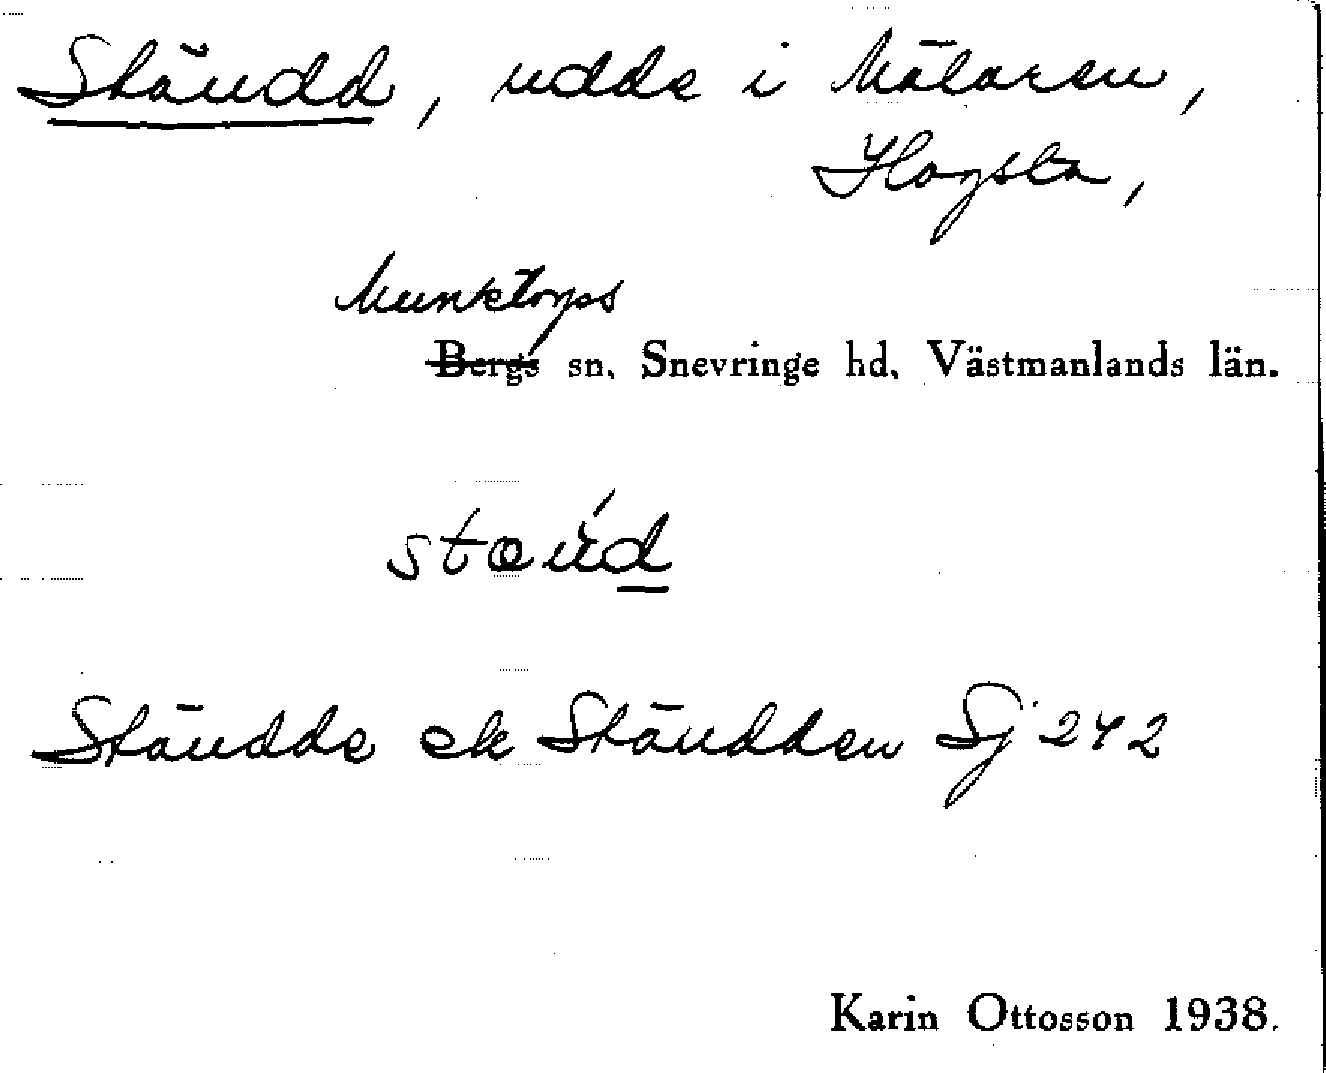 Stäudd, udde i Mälaren,
Hagsta,
Munktorps
Bergs sn. Snevringe hd. Västmanlands län.
stæúd
Stäudde ek Stäudden Sj 242
Karin Ottosson 1938.